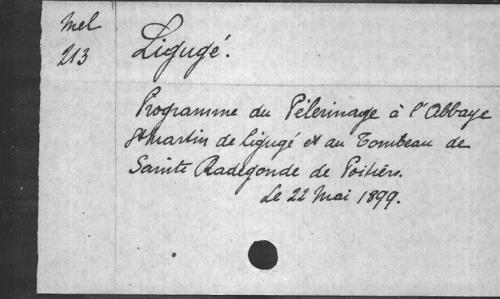 Mel
213
Ligugé.
Programme du Pélerinage à l'Abbaye
St Martin de Ligugé et au Tombeau de
Sainte Radegonde de Poitiers.
Le 22 Mai 1899.